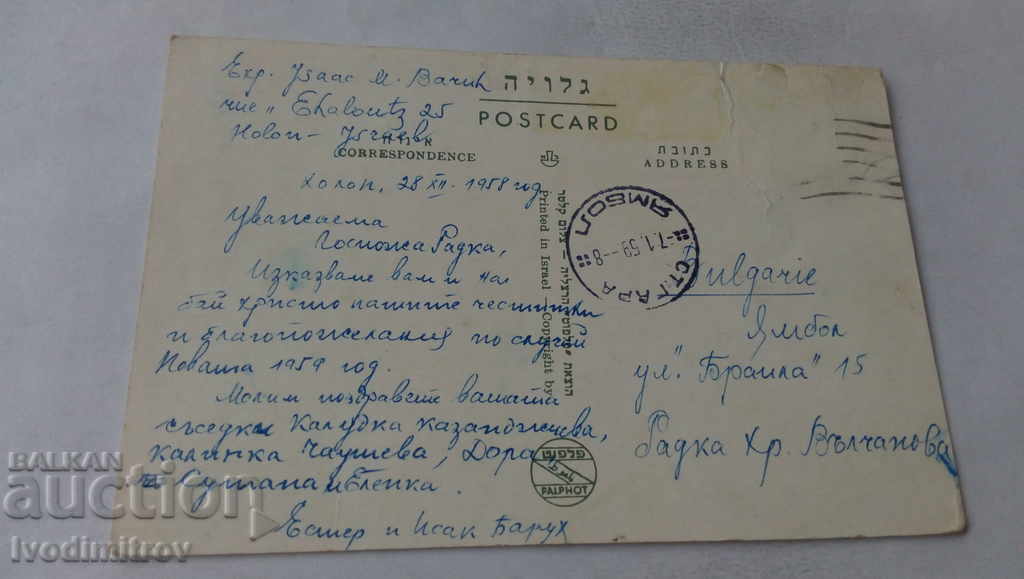 Exp. Isaac M. Baruh
"Chaloutz 25
גלויה
POSTCARD
CORRESPONDENCE
כתובת
ADDRESS
Холон, 28 XII. 1958 год
Уважаема
Госпожа Радка,
Изказваме вам и на
бай христо нашите честитки
и благопожелания по случай
Новата 1959 год.
Молим поздравете вашата
съседки Калудка Казанджиева,
Калинка Чаушева, Дора
Султана и Бленка.
Естер и Исак Барух
Printed in Israel - Copyright by
פלפוט
PALPHOT
ЯМБОЛ
-7.1.59--8
СТ. ГАРА
Bulgarie
Ямбол
ул. "Браила" 15
Радка Хр. Вълчанова
BALKAN
auction
Ivodimitrov